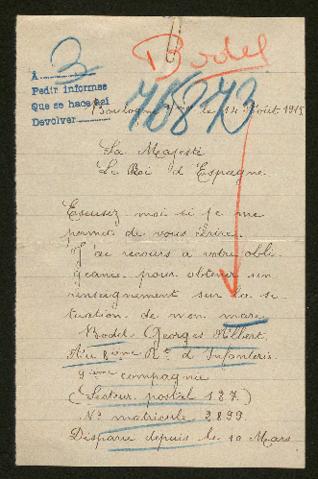 Bodel
3
76873
À
Pedir informes
Que se hace así
Devolver
Boulogne s/m le 14 Août 1915
Sa Majesté
Le Roi d'Espagne
Excusez moi si je me
permet de vous écrire.
J'ai recours à votre obli
geance pour obtenir un
renseignement sur la si
tuation de mon mari
Bodel Georges Albert
Au 8ème Rt d'Infanterie
9ième compagnie
(Secteur postal 127)
No matricule 2899
Disparu depuis le 10 Mars